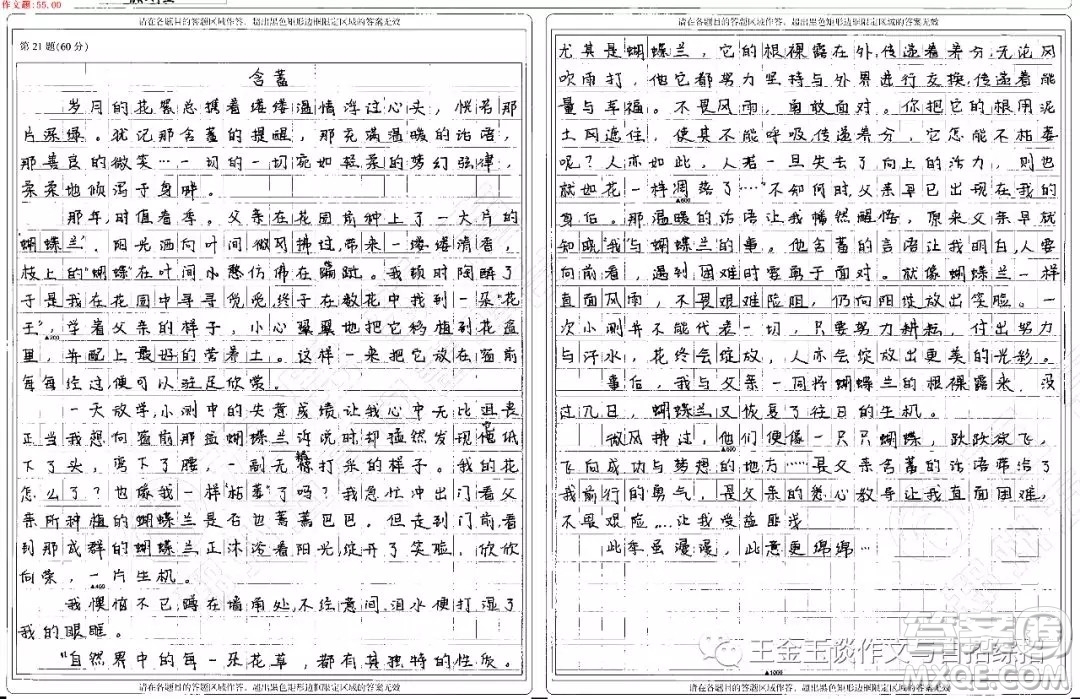 作文题:55.00
请在各题目的答题区域作答，超出黑色矩形边框限定区域的答案无效
第21题(60分)
含蓄
岁月的花絮总携着缕缕温情浮过心头，恍若那
片深爆。犹记那含蓄的提醒，那充满温暖的话语，
那善良的微笑…一切的一切宛如轻柔的梦幻弦弹，
柔柔地倾泻于身畔。
那年，时值春季。父亲在花园前种上了一大片的
蝴蝶兰，阳光洒向叶间微风拂过，带来一缕缕清香，
枝上的"蝴蝶"在叶间小憩仿佛在蹁跹。我顿时陶醉了
于是我在花圃中寻寻觅觅，终于在数花中我到一朵"花
王"，学着父亲的样子，小心翼翼地把它移植到花盆
里，并配上最好的营养土。这样一来把它放在窗前
每每经过，便可以驻足欣赏。
一天放学，小测中的失意成绩让我心中无比沮丧
正当我想向窗前那盆蝴蝶兰诉说时却猛然发现它低
下了头，弯下了腰，一副无精打采的样子。我的花
怎么了？也像我一样"枯萎"了吗？我急忙冲出门看父
亲所种植的蝴蝶兰是否也蔫蔫巴巴。但走到门前，看
到那成群的蝴蝶兰正沐浴着阳光，绽开了笑脸，欣欣
向荣，一片生机。
我懊恼不已，蹲在墙角处，不经意间，泪水便打湿了
我的眼眶。
"自然界中的每一朵花草，都有其独特的性质。
请在各题目的答题区域作答，超出黑色矩形边框限定区域的答案无效
请在各题目的答题区域作答，超出黑色矩形边框限定区域的答案无效
尤其是蝴蝶兰，它的根裸露在外，传递着养分，无论风
吹雨打，他它都努力坚持与外界进行交换，传递着能
量与幸福。不畏风雨，勇敢面对。你把它的根用泥
土网遮住，使其不能呼吸传递养分，它怎能不枯萎
呢？人亦如此，人若一旦失去了向上的活力，则也
就如花一样凋落了…"不知何时父亲早已出现在我的
身后。那温暖的话语让我幡然醒悟，原来父亲早就
知晓"我与蝴蝶兰的事。他含蓄的言语让我明白，人要
向前看，遇到困难时要勇于面对。就像蝴蝶兰一样
直面风雨，不畏艰难险阻，仍向阳绽放出笑脸。一
次小测并不能代表一切，只要努力耕耘，付出努力
与汗水，花终会绽放，人亦会绽放出更美的光彩。
事后，我与父亲一同将蝴蝶兰的根裸露来，没
过几日，蝴蝶兰又恢复了往日的生机。
微风拂过，他们便像一只只蝴蝶，跃跃欲飞，
飞向成功与梦想的地方……是父亲含蓄的话语带给了
我前行的勇气，是父亲的悉心教导让我直面困难，
不畏艰险…让我受益匪浅
此年虽漫漫，此意更绵绵…
▲1000
请在各题目的答题区域作答，超出黑色矩形边框限定区域的答案无效
王金玉谈作文与自招综招